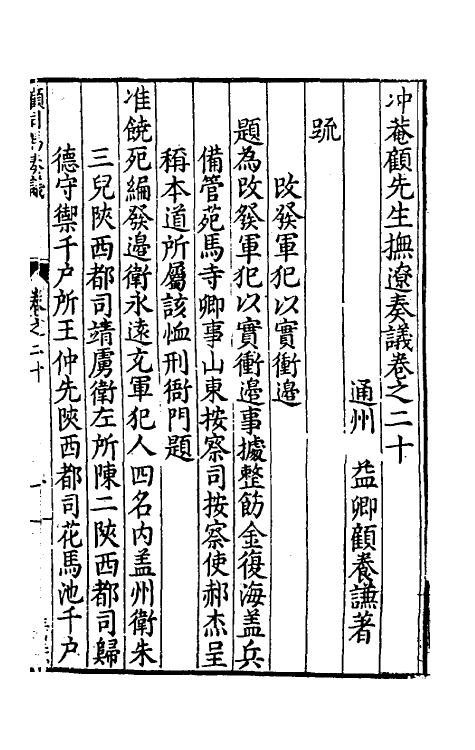 冲菴顧先生撫遼奏議卷之二十
通州　益卿顧養謙著
疏
改發軍犯以實衝邊
題為改發軍犯以實衝邊事據整飭金復海盖兵
備管苑馬寺卿事山東按察司按察使郝杰呈
稱本道所屬該恤刑衙門題
准饒死編發邉衛永遠充軍犯人四名内盖州衛朱
三兒陝西都司靖虜衛左所陳二陝西都司歸
德守禦千户所王仲先陝西都司花馬池千户
顧司馬奏議
卷之二十
一